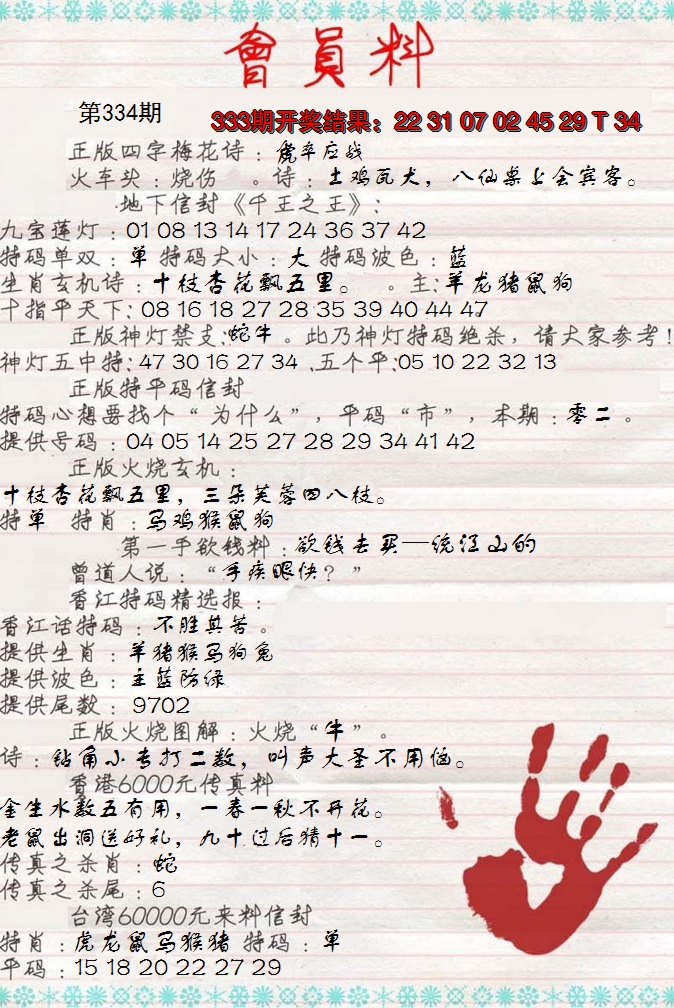 會員料
第334期
333期开奖结果：22 31 07 02 45 29 T 34
正版四字梅花诗：虎卒应战
火车头：烧伤 。诗：土鸡瓦犬，八仙桌上会宾客。
地下信封《千王之王》：
九宝莲灯：01 08 13 14 17 24 36 37 42
特码单双：单 特码大小：大 特码波色：蓝
生肖玄机诗：十枝杏花飘五里。 。主：羊龙猪鼠狗
十指平天下：08 16 18 27 28 35 39 40 44 47
正版神灯禁支：蛇牛 。此乃神灯特码绝杀，请大家参考！
神灯五中特：47 30 16 27 34 .五个平：05 10 22 32 13
正版特平码信封
特码心想要找个“ 为什么”，平码“市”，本期：零二 。
提供号码：04 05 14 25 27 28 29 34 41 42
正版火烧玄机：
十枝杏花飘五里，三朵芙蓉四八枝。
特单 特肖：马鸡猴鼠狗
第一手欲钱料：欲钱去买一统江山的
曾道人说：“手疾眼快？”
香江特码精选报：
香江话特码：不胜其苦 。
提供生肖：羊猪猴马狗兔
提供波色：主蓝防绿
提供尾数：9702
正版火烧图解：火烧“牛” 。
诗：钻角小专打二数，叫声大圣不用恼。
香港6000元传真料
金生水数五有用，一春一秋不开花。
老鼠出洞送好礼，九十过后猜十一。
传真之杀肖：蛇
传真之杀尾：6
台湾60000元来料信封
特肖：虎龙鼠马猴猪 特码：单
平码：15 18 20 22 27 29